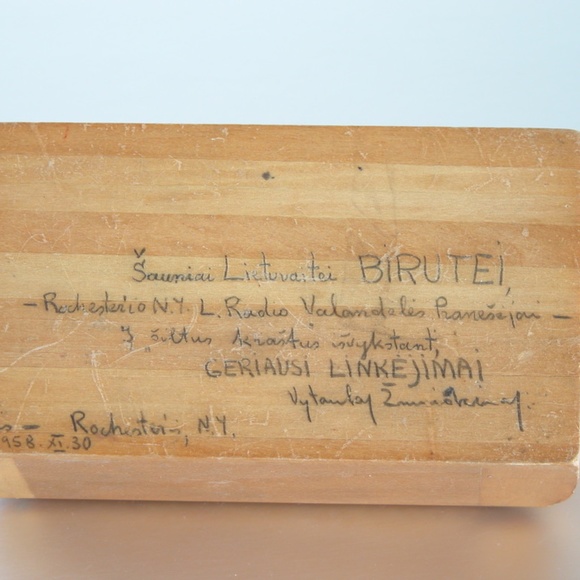 Šauniai Lietuvaitei BIRUTEI,
– Rochester'io N.Y. L. Radio Valandėlės Pranešėjai –
Į šiltus kraštus išvykstant,
GERIAUSI LINKĖJIMAI
Vytautas
– Rochester'is, N.Y.
1958. XI. 30